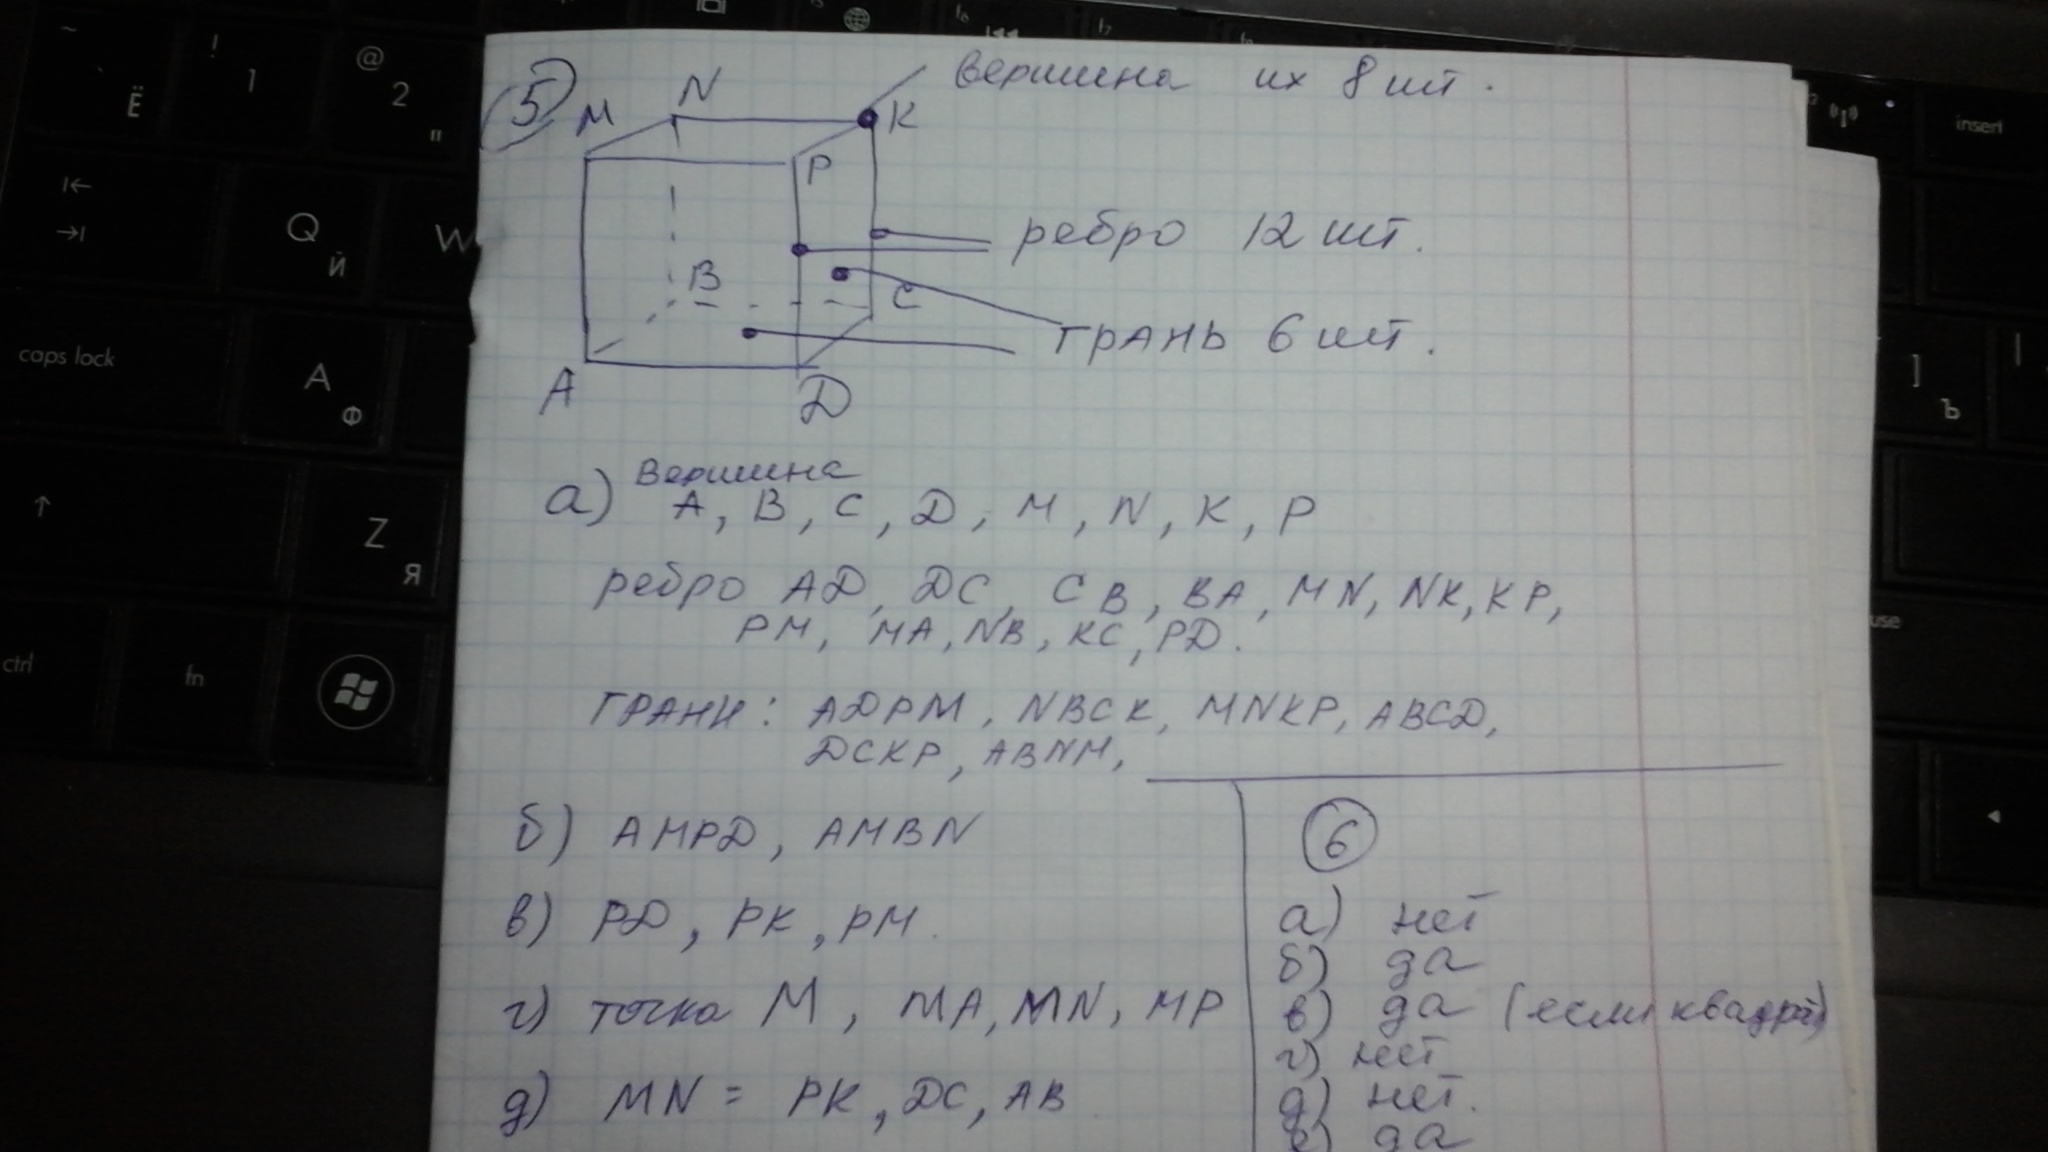 5
вершина их 8 шт.
M N K
P
ребро 12 шт.
B C
грань 6 шт.
A D
а) Вершина
A, B, C, D, M, N, K, P
ребро AD, DC, CB, BA, MN, NK, KP,
PM, MA, NB, KC, PD.
грани: ADPM, NBCK, MNKP, ABCD,
DCKP, ABNM,
б) AMPD, AMBN
в) PD, PK, PM.
г) точка M, MA, MN, MP
д) MN = PK, DC, AB
6
а) нет
б) да
в) да (если квадрат)
г) нет
д) нет.
е) да
~ Ё
! 1
@ 2 "
Q Й
W
caps lock
A Ф
Z Я
ctrl
fn
f6
f7
insert
] Ъ
use